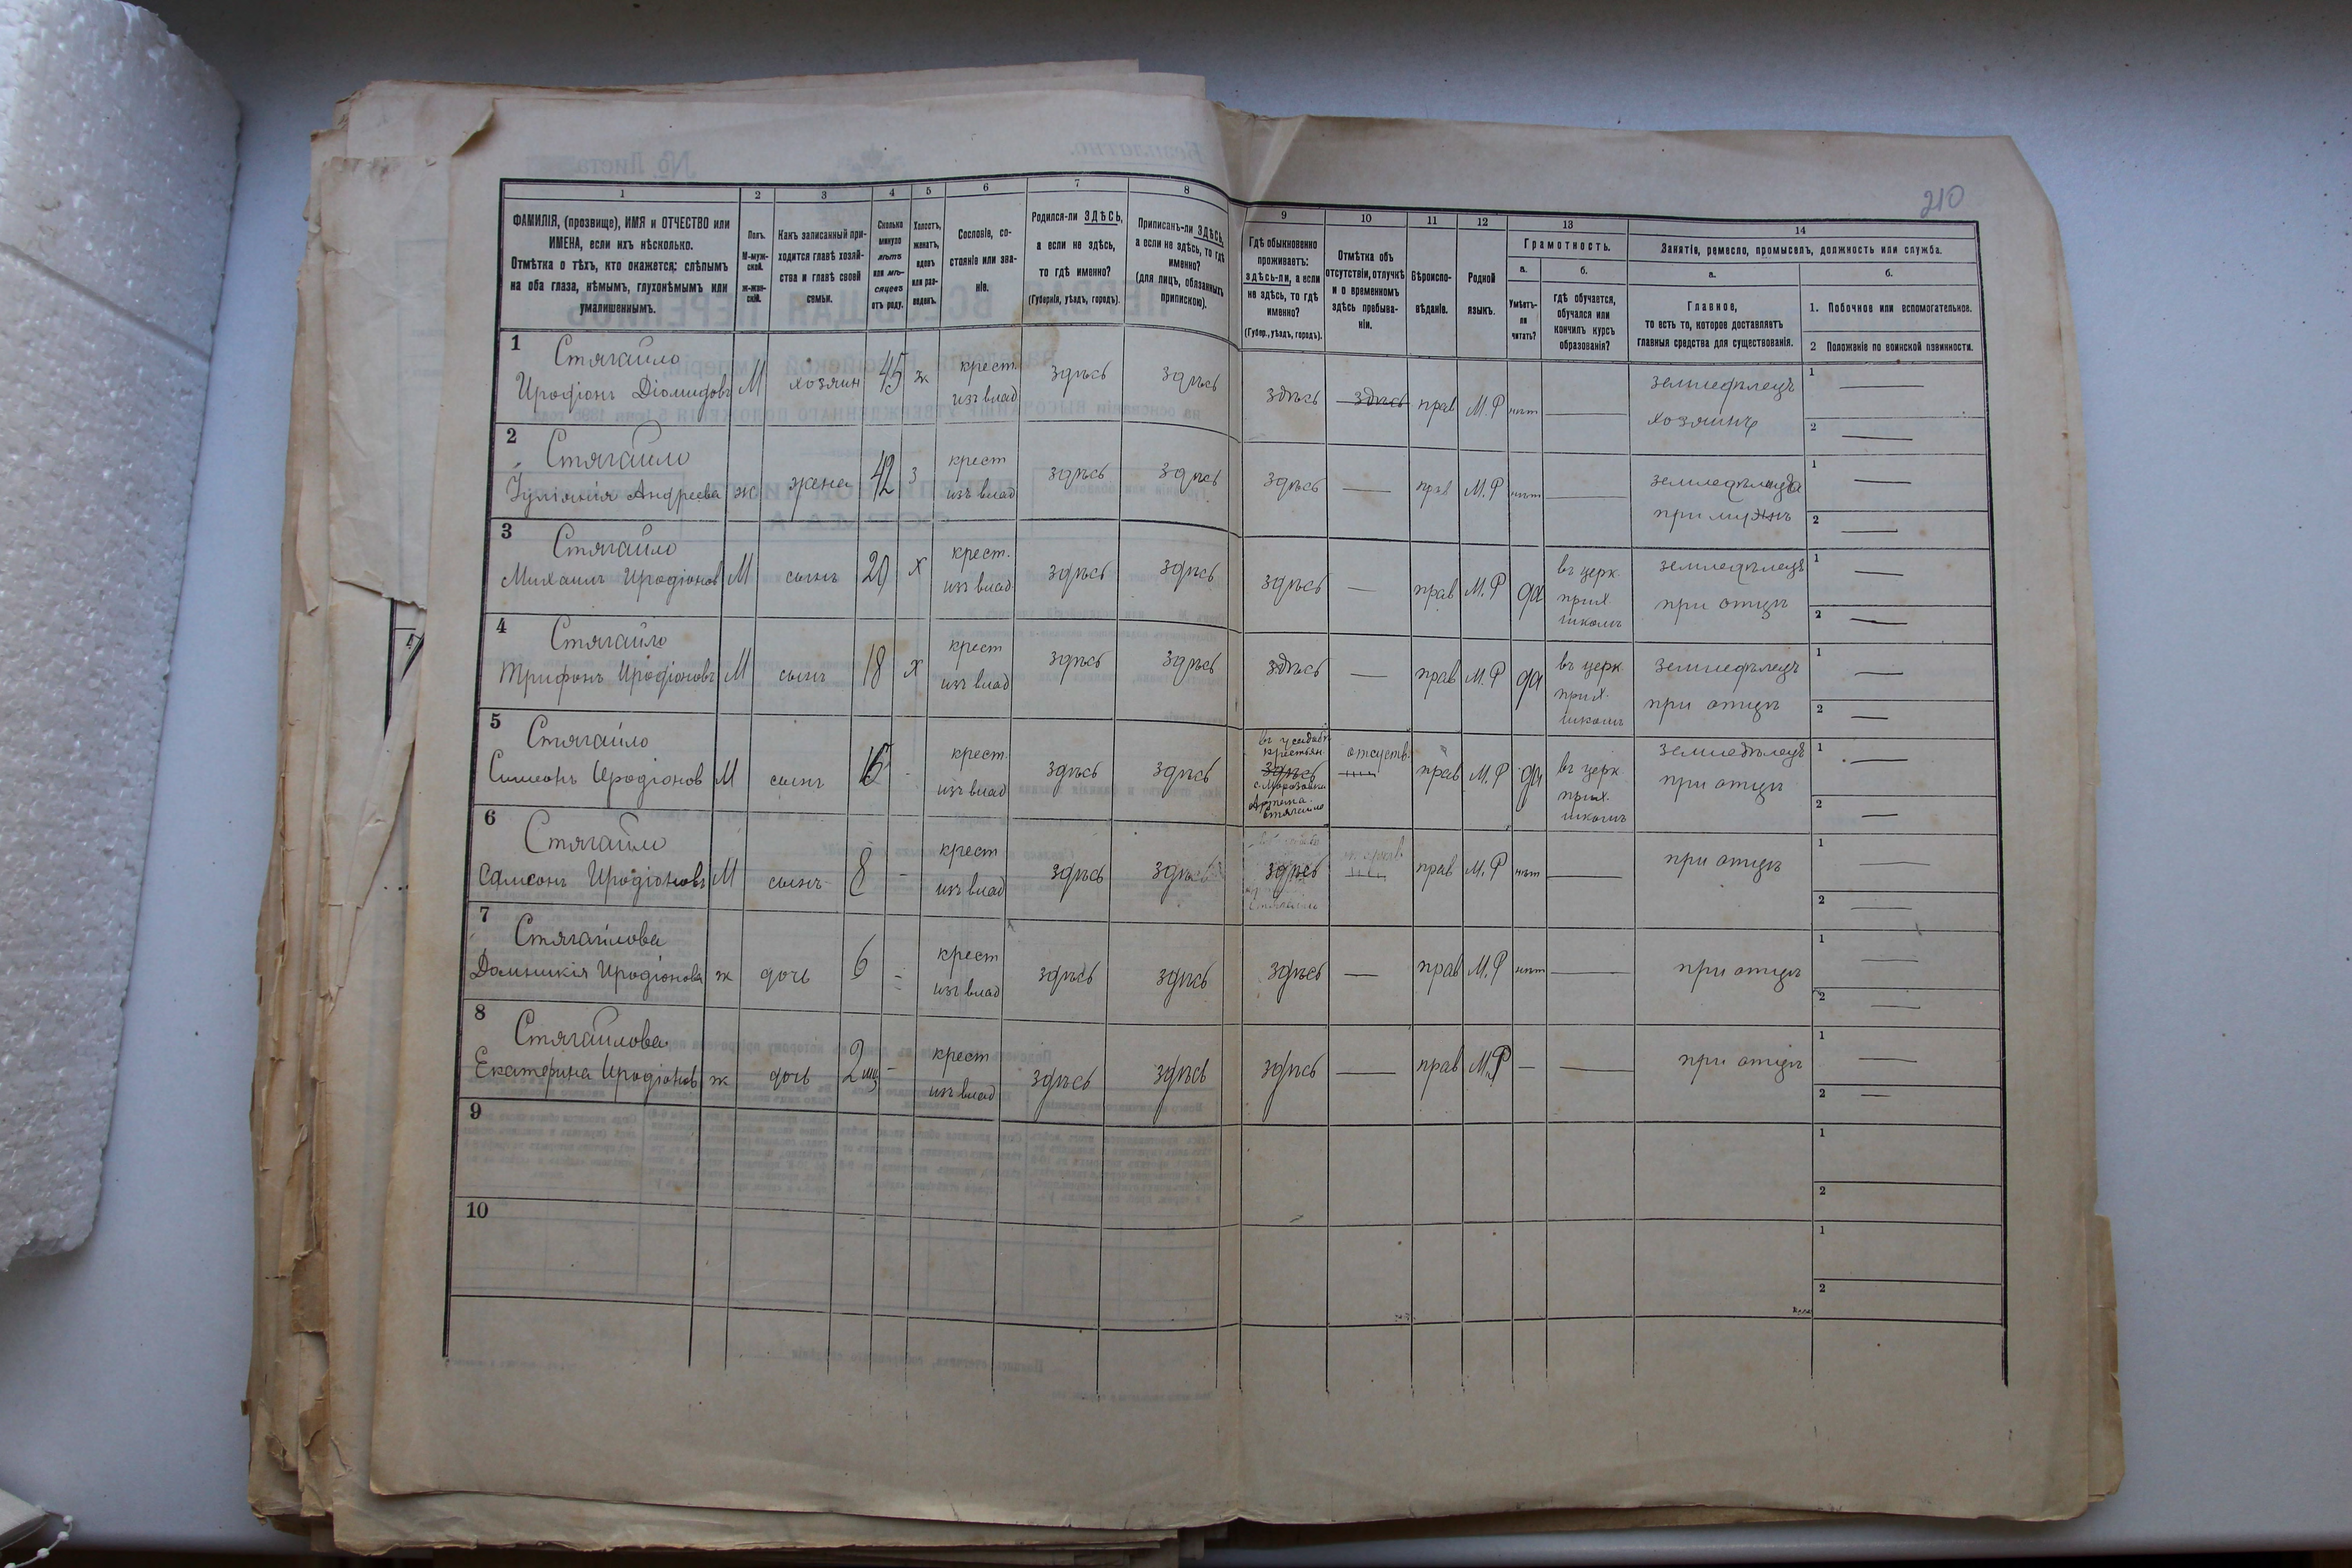 210
1
2
3
4
5
6
7
8
9
10
11
12
13
14
ФАМИЛІЯ, (прозвище), ИМЯ и ОТЧЕСТВО или
ИМЕНА, если ихъ нѣсколько.
Отмѣтка о тѣхъ, кто окажется: слѣпымъ
на оба глаза, нѣмымъ, глухонѣмымъ или
умалишеннымъ.
Полъ.
М-муж-
ской.
ж-жен-
скій.
Какъ записанный при-
ходится главѣ хозяй-
ства и главѣ своей
семьи.
Сколько
минуло
лѣтъ
или мѣ-
сяцевъ
отъ роду.
Холостъ,
женатъ,
вдовъ
или раз-
веденъ.
Сословіе, со-
стояніе или зва-
ніе.
Родился-ли ЗДѢСЬ,
а если не здѣсь,
то гдѣ именно?
(Губернія, уѣздъ, городъ).
Приписанъ-ли ЗДѢСЬ,
а если не здѣсь, то гдѣ
именно?
(для лицъ, обязанныхъ
припискою).
Гдѣ обыкновенно
проживаетъ:
здѣсь-ли, а если
не здѣсь, то гдѣ
именно?
(Губер., уѣздъ, городъ).
Отмѣтка объ
отсутствіи, отлучкѣ
и о временномъ
здѣсь пребыва-
ніи.
Вѣроиспо-
вѣданіе.
Родной
языкъ.
Грамотность.
а.
Умѣетъ-
ли
читать?
б.
гдѣ обучается,
обучался или
кончилъ курсъ
образованія?
Занятіе, ремесло, промыселъ, должность или служба.
а.
Главное,
то есть то, которое доставляетъ
главныя средства для существованія.
б.
1. Побочное или вспомогательное.
2 Положеніе по воинской повинности.
1 Стягайло
Иродіонъ Діомидовъ М хозяин 45 ж крест. изъ влад здѣсь здѣсь здѣсь здѣсь прав М.Р нѣт земледѣлецъ хозяинъ 1
2
2 Стягайло
Іуліанія Андреева ж жена 42 з крест изъ влад здѣсь здѣсь здѣсь прав М.Р нѣт земледѣлица при мужѣ 1
2
3 Стягайло
Михаилъ Иродіонов М сынъ 20 х крест. изъ влад здѣсь здѣсь здѣсь прав М.Р да въ церк. прих. школѣ земледѣлецъ при отцѣ 1
2
4 Стягайло
Трифонъ Иродіоновъ М сынъ 18 х крест изъ влад здѣсь здѣсь здѣсь прав М.Р да въ церк. прих. школѣ земледѣлецъ при отцѣ 1
2
5 Стягайло
Симеонъ Иродіонов М сынъ 15 крест. изъ влад здѣсь здѣсь въ усадьбѣ крестьян. здѣсь с. Морозовки Артема Стягайло отсутств. прав М.Р да въ церк прих. школѣ земледѣлецъ при отцѣ 1
2
6 Стягайло
Самсонъ Иродіоновъ М сынъ 8 - крест изъ влад здѣсь здѣсь здѣсь прав М.Р нѣт при отцѣ 1
2
7 Стягайлова
Домникія Иродіонова ж дочь 6 крест изъ влад здѣсь здѣсь здѣсь прав М.Р нѣт при отцѣ 1
2
8 Стягайлова
Екатерина Иродіонов ж дочь 2 мц - крест изъ влад здѣсь здѣсь здѣсь прав М.Р при отцѣ 1
2
9 1
2
10 1
2